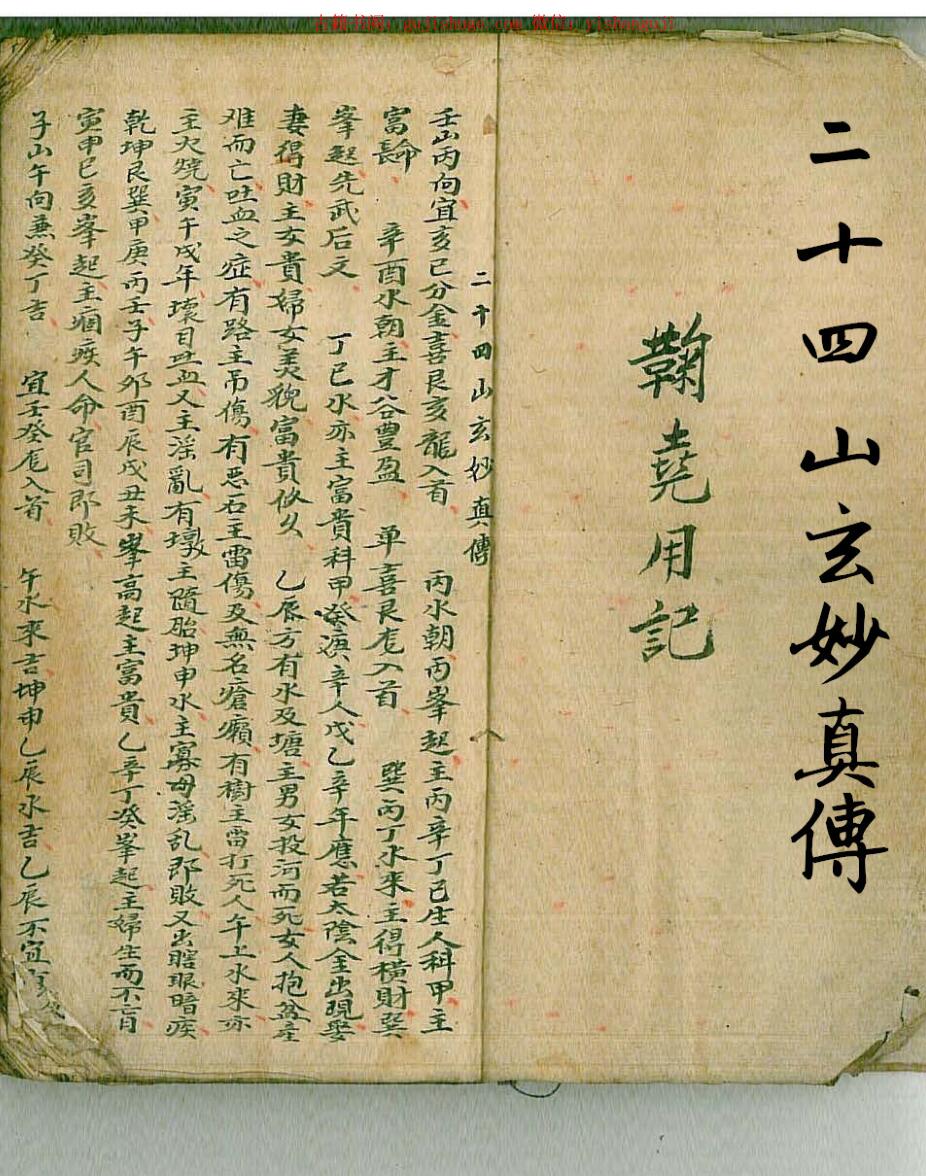 古籍书阁: gujishuge.com 微信: yishengujl
二十四山玄妙真傳
鞠堯用記
二十四山玄妙真傳
壬山丙向宜亥巳分金喜艮亥龍入首 丙水朝丙峯起主丙辛丁巳生人科甲主
富長命 辛酉水朝主才谷豊盈 单喜艮龙入首 巽丙丁水來主得横財巽
峯起先武后文 丁巳水亦主富貴科甲癸演辛人戊乙辛年應若太陰金出現娶
妻得財主女貴婦女美貌富貴攸久 乙辰方有水及塘主男女投河而死女人抱盆产
难而亡吐血之症有路主吊傷有恶石主雷傷及無名瘡癩有樹主雷打死人午上水來亦
主火燒寅午戌年壞目吐血又主淫亂有墩主隨胎坤申水主寡母淫乱即敗又出瞎眼暗疾
乾坤艮巽甲庚丙壬子午卯酉辰戌丑未峯高起主富貴乙辛丁癸峯起主婦生而不育
寅申巳亥峯起主痼疾人命官司即敗
子山午向兼癸丁吉 宜壬癸龙入首 午水來吉坤申乙辰水吉乙辰不宜